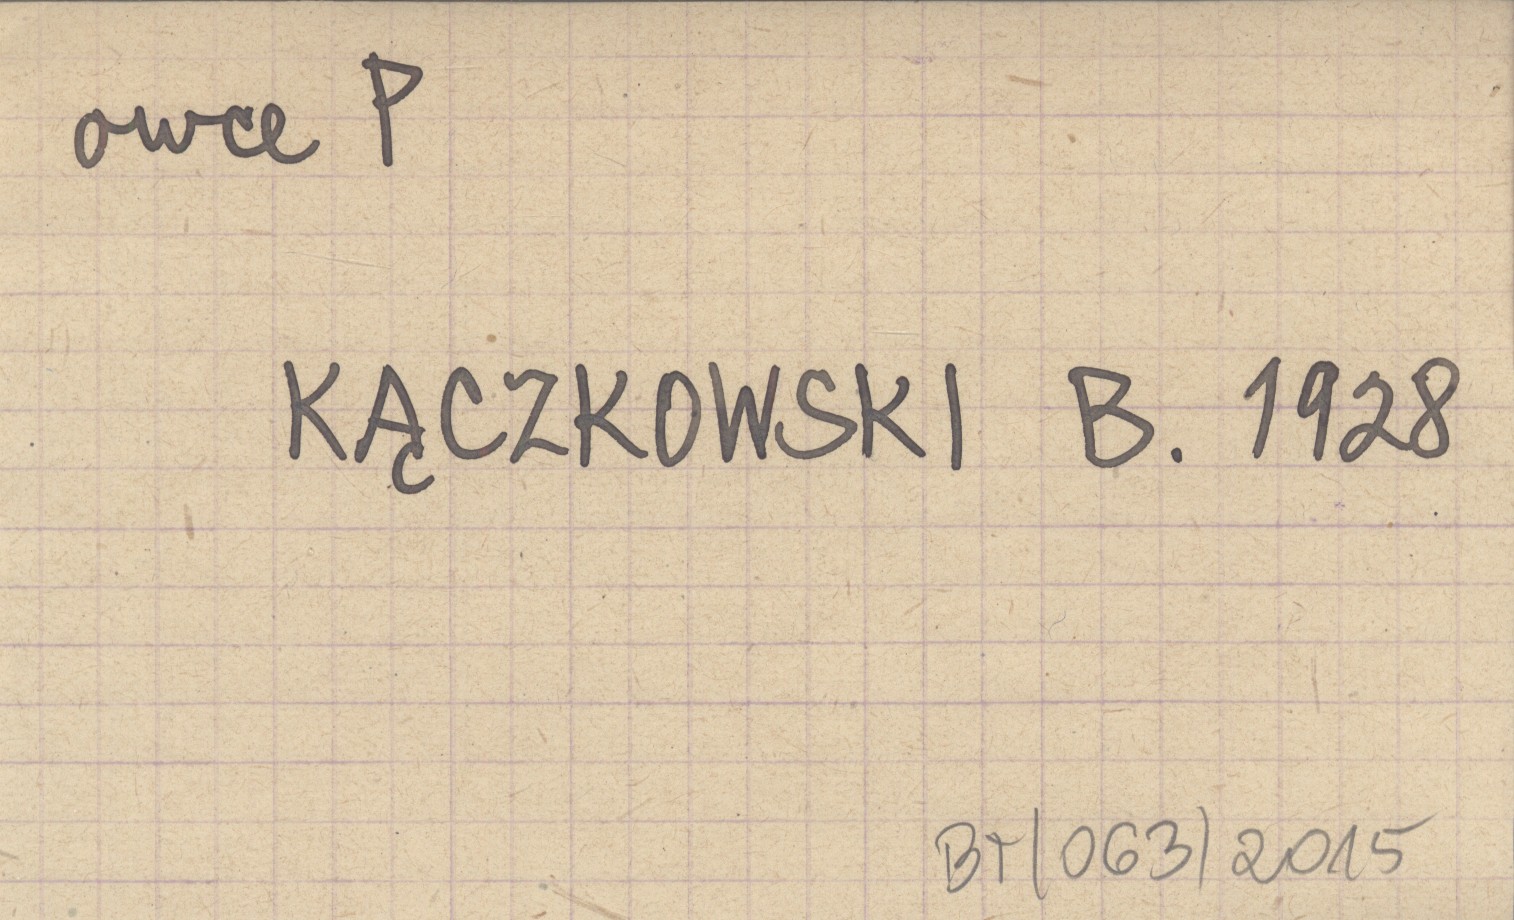 owce P
KĄCZKOWSKI B. 1928
BT/063/2015